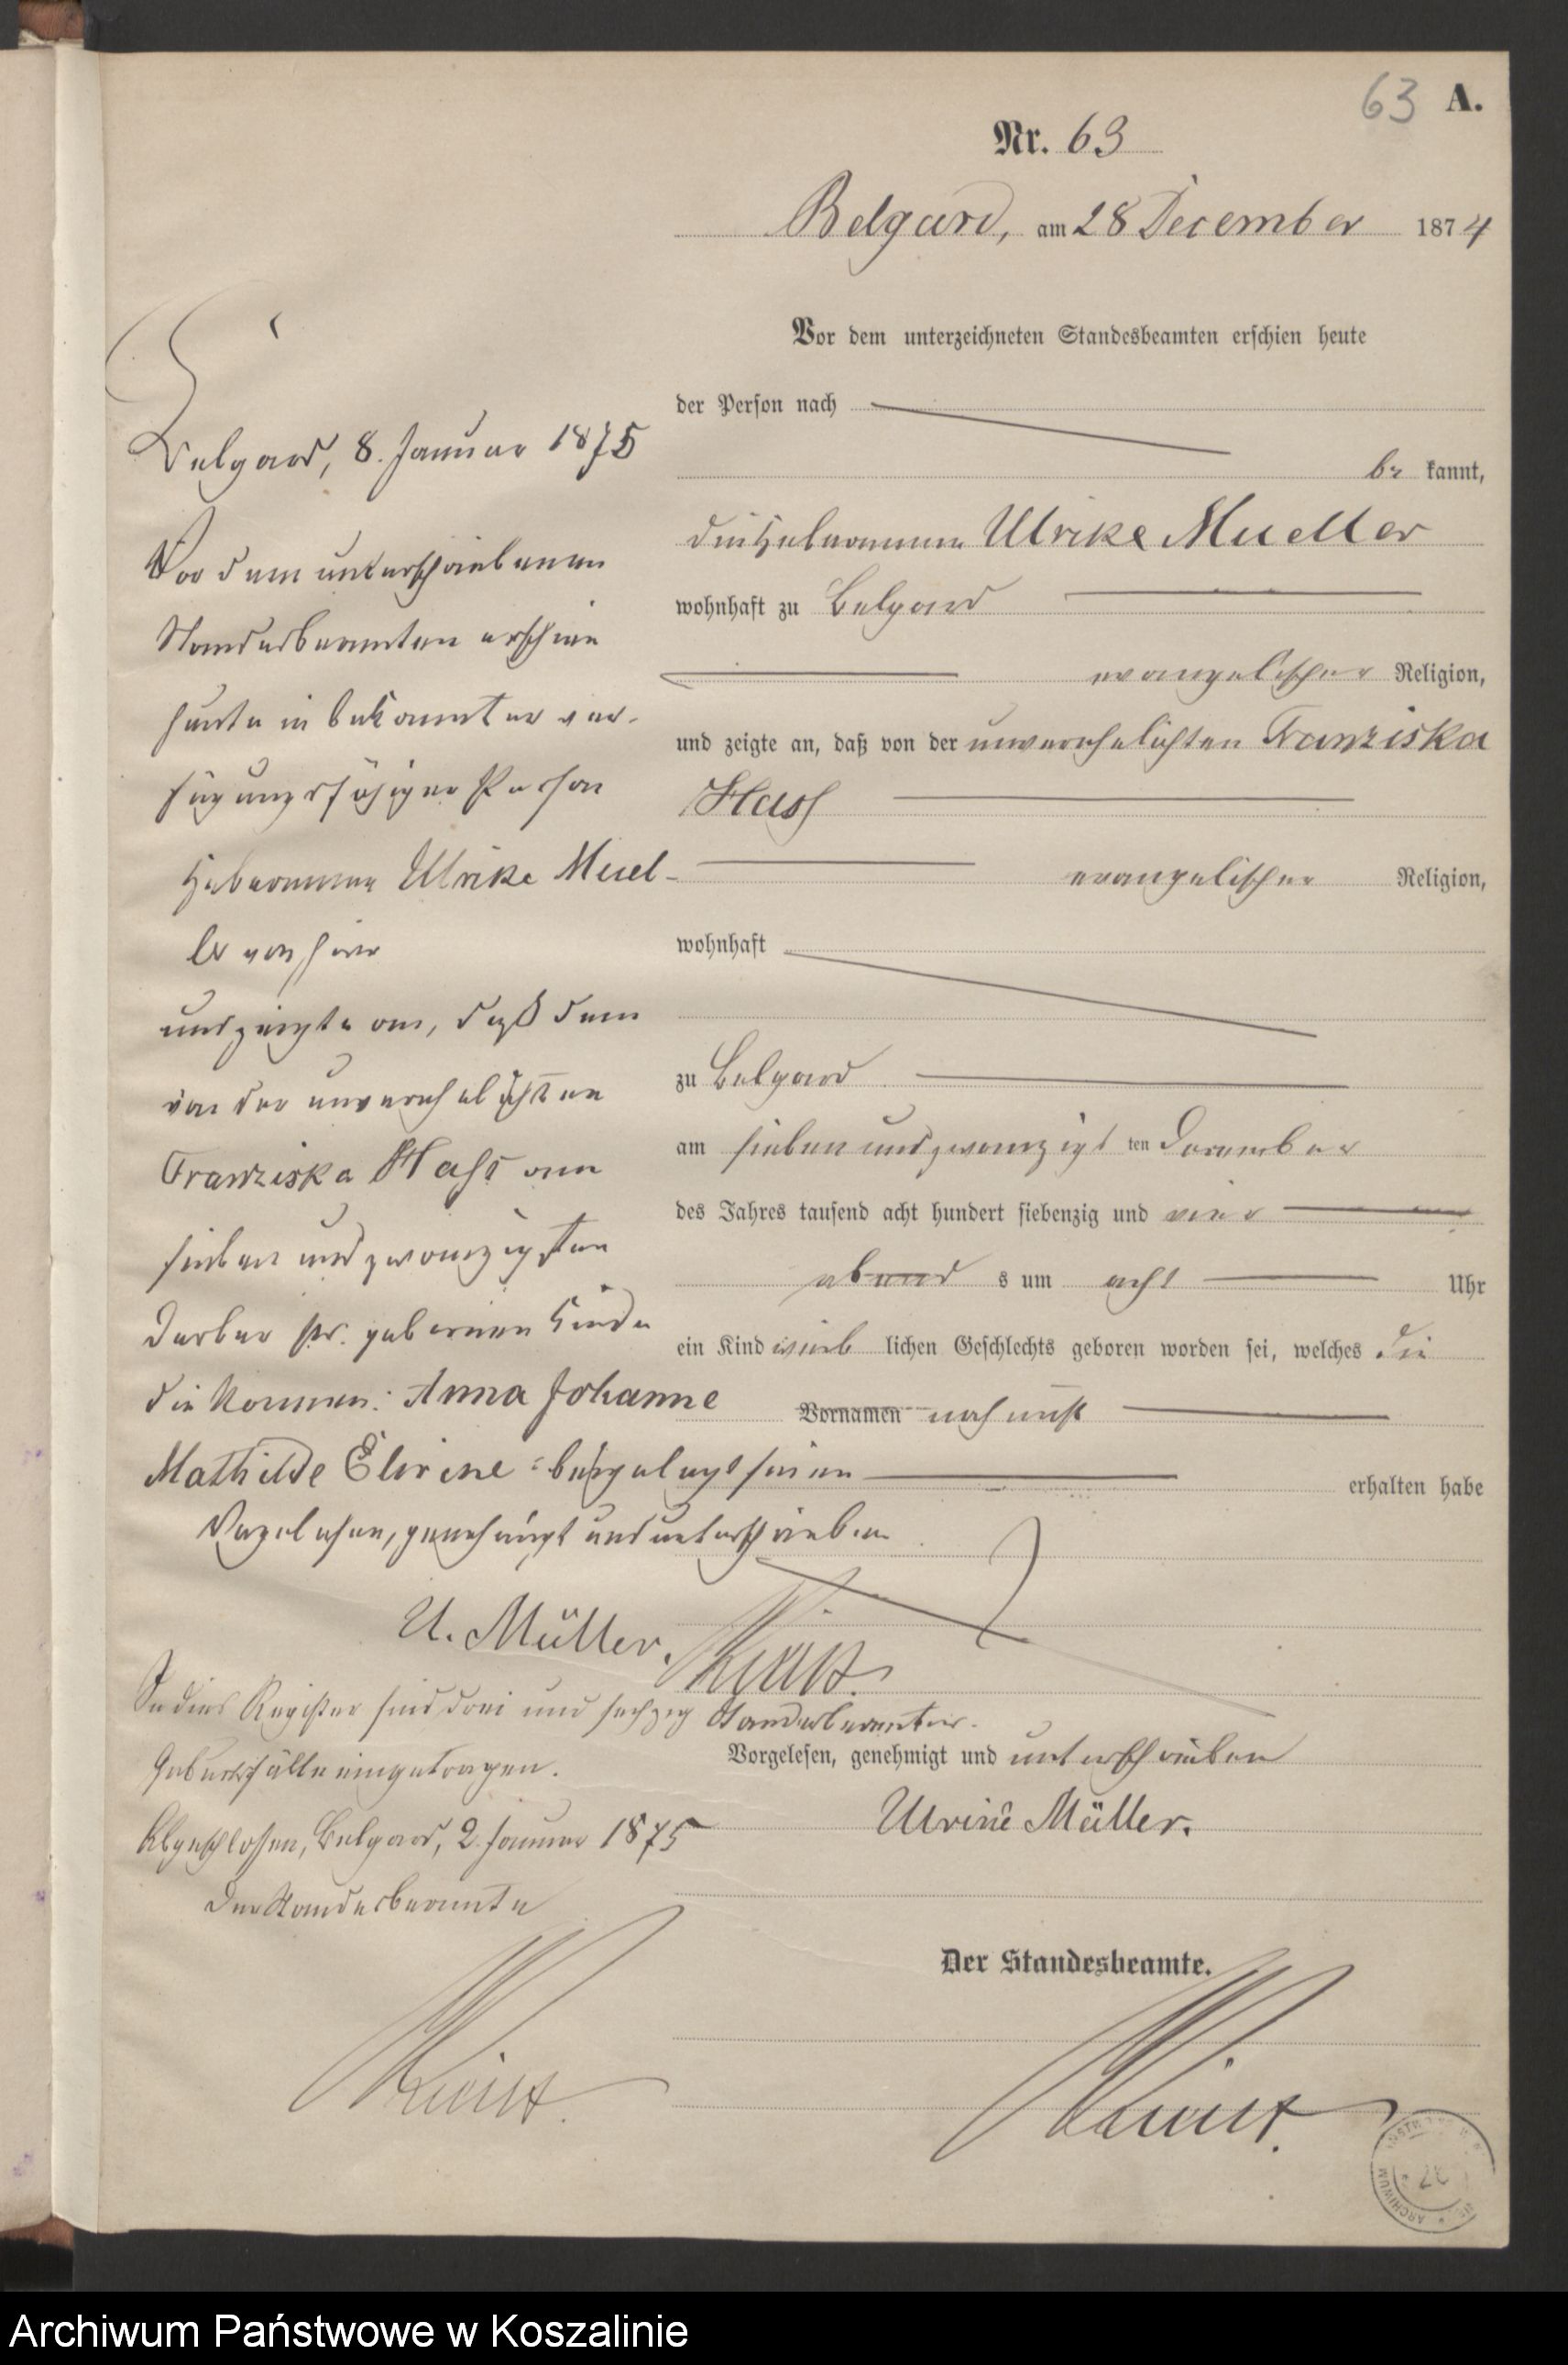 63 A.
Nr. 63
Belgard, am 28 December 1874
Vor dem unterzeichneten Standesbeamten erschien heute
der Person nach
be kannt,
die Hebeamme Ulrike Mueller
wohnhaft zu Belgard
evangelischer Religion,
und zeigte an, daß von der unverehelichten Franziska
Hass
evangelischer Religion,
wohnhaft
zu Belgard
am sieben und zwanzigst ten December
des Jahres tausend acht hundert siebenzig und vier
abend s um acht Uhr
ein Kind weib lichen Geschlechts geboren worden sei, welches die
Vornamen noch nicht
erhalten habe
Vorgelesen, genehmigt und unterschrieben
Ulrike Müller.
Der Standesbeamte.
Belgard, 8. Januar 1875
Vor dem unterschriebenen
Standesbeamten erschien
heute in bekannter ver-
fügungsfähiger Person
Hebeamme Ulrike Muel-
ler von hier
und zeigte an, daß dem
von der unverehelichten
Franziska Hass am
sieben und zwanzigsten
Decber pr. geborenen Kinde
die Namen: Anna Johanne
Mathilde Elwine beigelegt seien
Vorgelesen, genehmigt und unterschrieben
U. Müller.
Standesbeamter.
In dies Register sind drei und sechzig
Geburtsfälle eingetragen.
Abgeschlossen, Belgard, 2. Januar 1875
Der Standesbeamte
ARCHIWUM
Archiwum Państwowe w Koszalinie